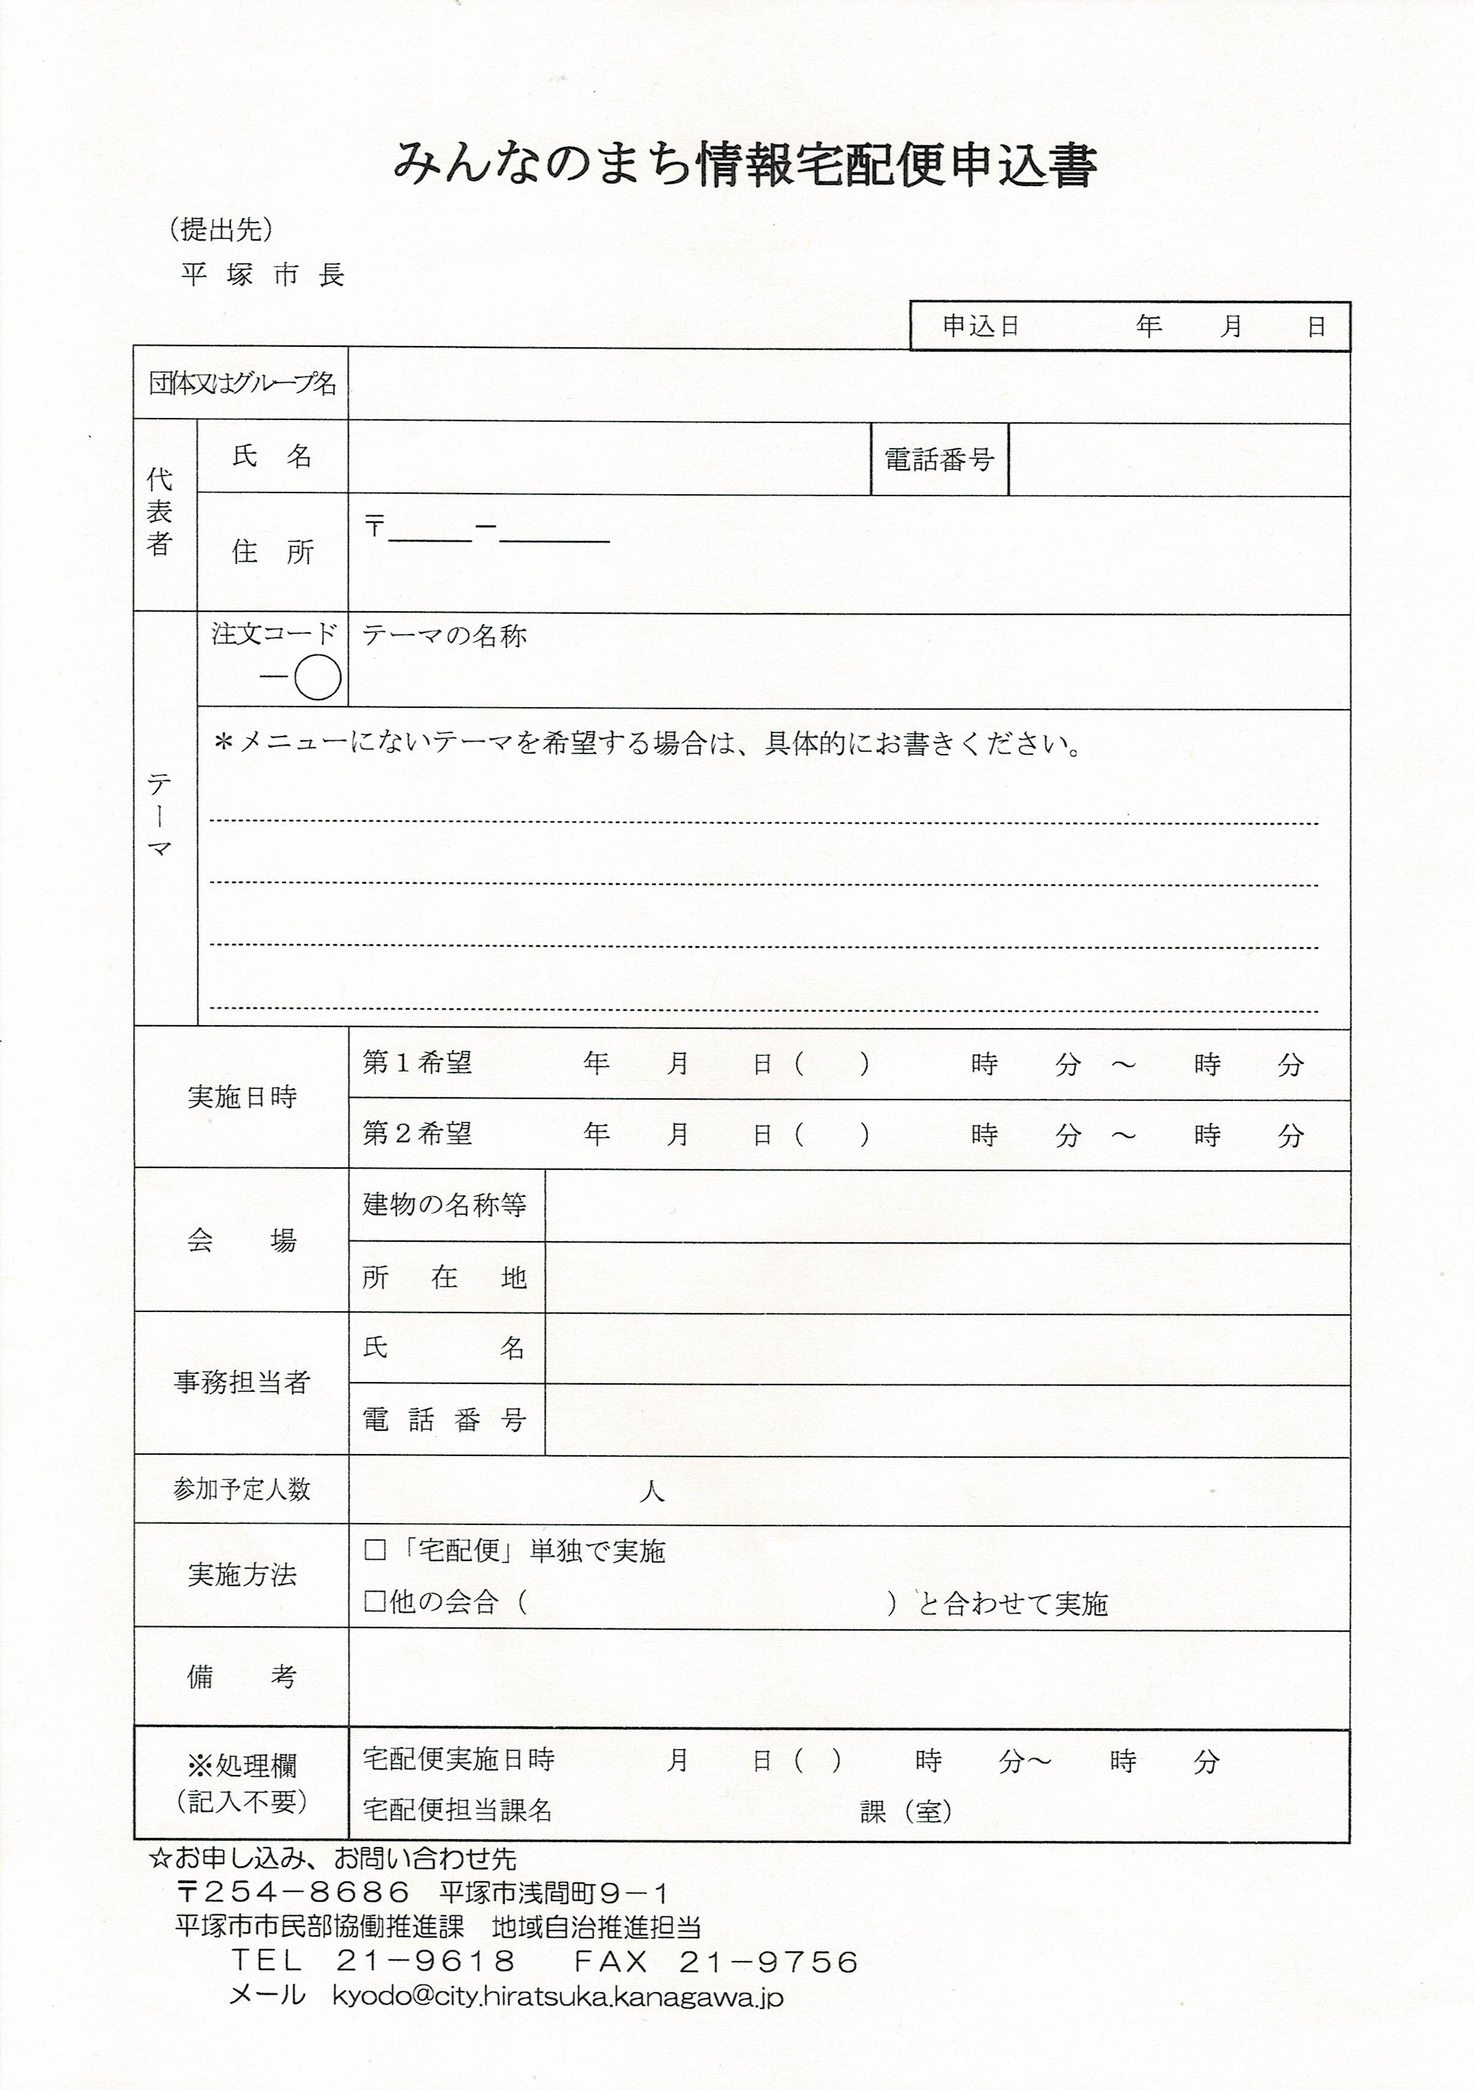 みんなのまち情報宅配便申込書
（提出先）
平 塚 市 長
申込日　　　　年　　月　　日
団体又はグループ名
代表者
氏　名
電話番号
住　所
〒＿＿＿－＿＿＿＿
テーマ
注文コード
－○
テーマの名称
＊メニューにないテーマを希望する場合は、具体的にお書きください。
実施日時
第１希望　　　　年　　月　　日（　　）　　　時　　分　～　　時　　分
第２希望　　　　年　　月　　日（　　）　　　時　　分　～　　時　　分
会　　場
建物の名称等
所　在　地
事務担当者
氏　　　　名
電 話 番 号
参加予定人数
人
実施方法
□「宅配便」単独で実施
□他の会合（　　　　　　　　　　　　　）と合わせて実施
備　　考
※処理欄
（記入不要）
宅配便実施日時　　　　月　　日（　）　　時　　分～　　時　　分
宅配便担当課名　　　　　　　　　　　課（室）
☆お申し込み、お問い合わせ先
〒２５４－８６８６　平塚市浅間町９－１
平塚市市民部協働推進課　地域自治推進担当
ＴＥＬ　２１－９６１８　　ＦＡＸ　２１－９７５６
メール　kyodo@city.hiratsuka.kanagawa.jp